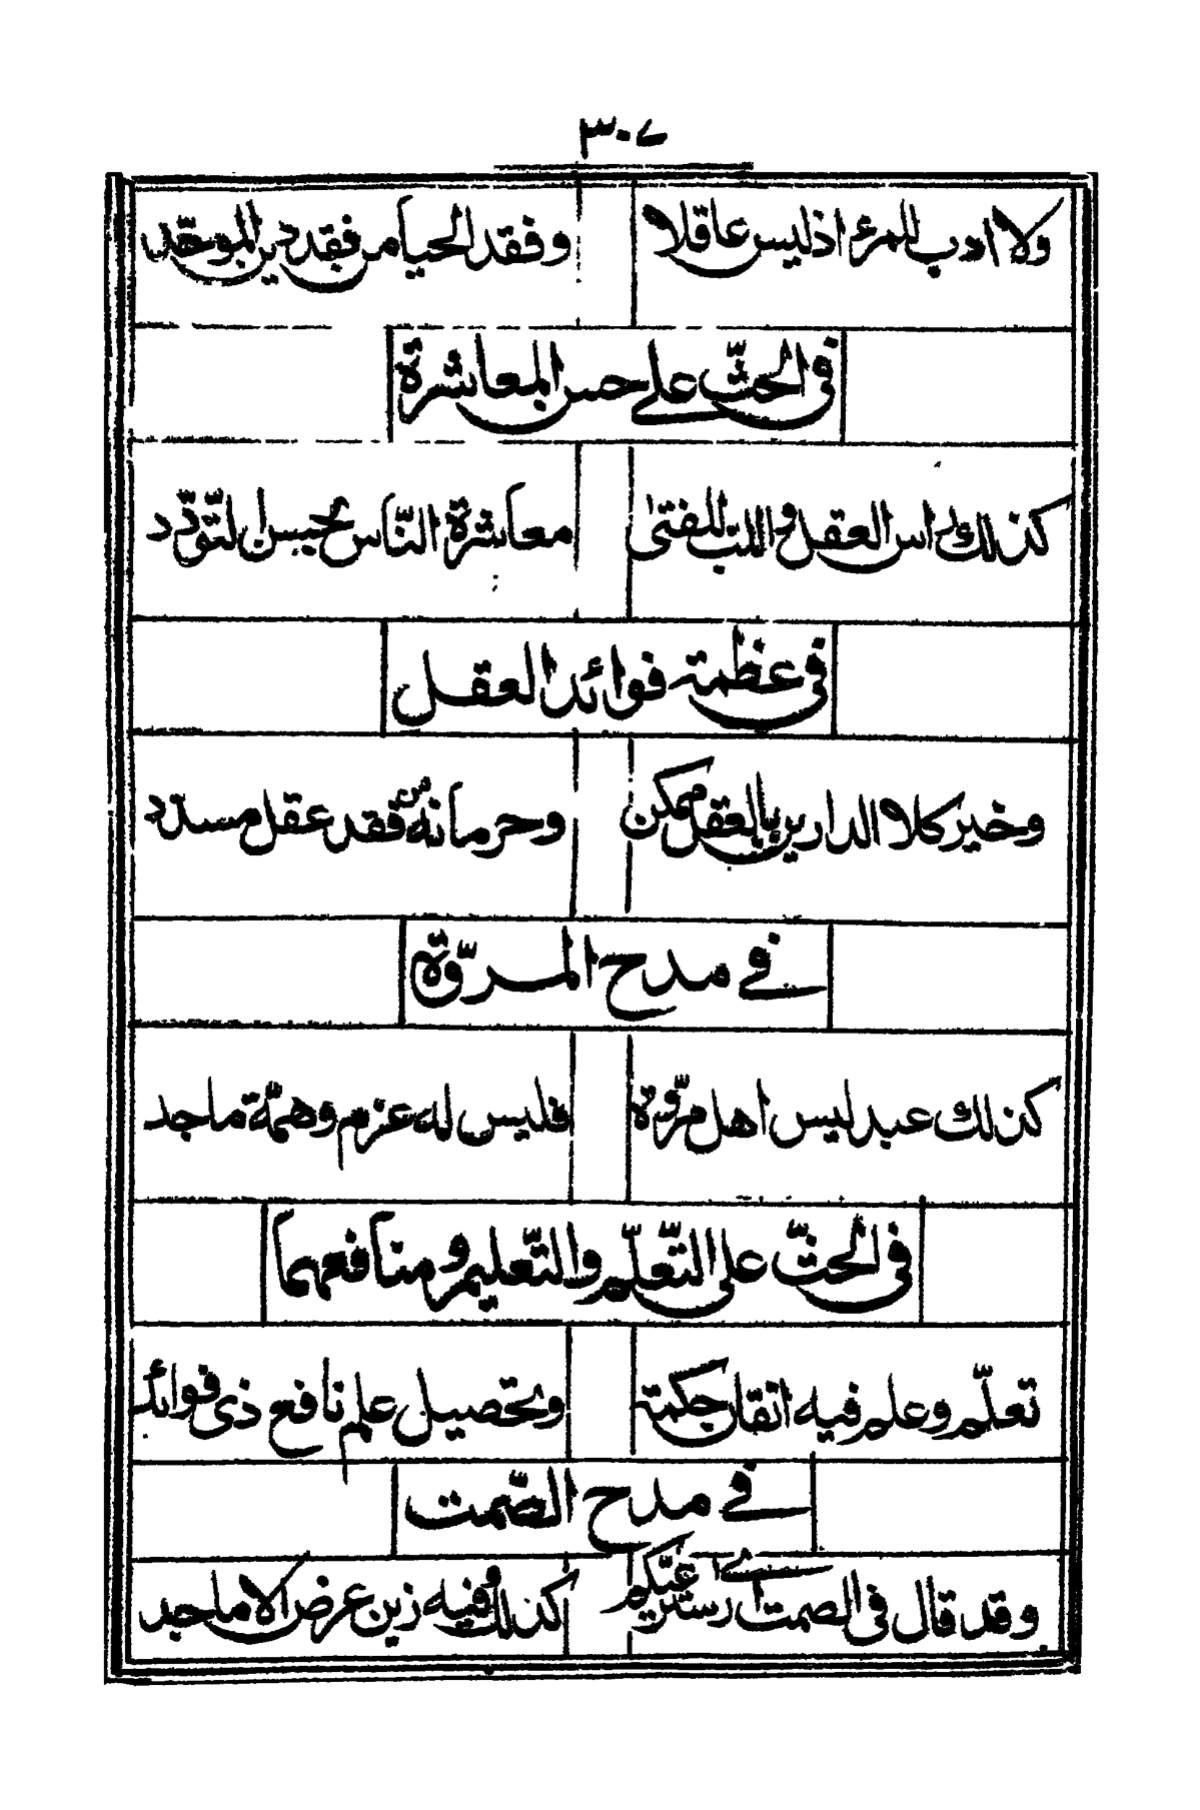 ٣٠٧
ولا ادب للمرء اذ ليس عاقلا وفقد الحيا من فقد دين الموحّد
فى الحثّ على حسن المعاشرة
كذلك راس العقل واللب للفتى معاشرة النّاس بحسن التّودّد
فى عظمة فوائد العقل
وخير كلا الدارين بالعقل ممكن وحرمانه من فقد عقل مسدد
فى مدح المروّة
كذلك عبد ليس اهل مروّة فليس له عزم وهمّة ماجد
فى الحثّ على التّعلّم والتّعليم ومنافعهما
تعلّم وعلم فيه اتقان حكمة وتحصيل علم نافع ذى فوائد
فى مدح الصّمت
وقد قال فى الصمت اى ستر عيّكم كذلك وفيه زين عرض الاماجد